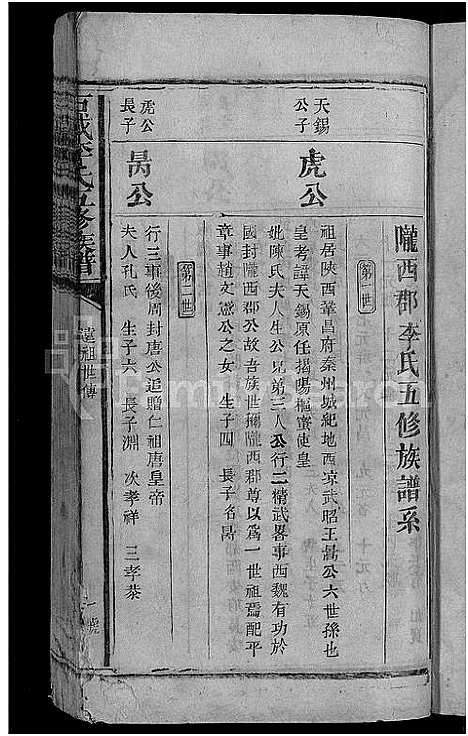 隴西郡李氏五修族譜系
第一世
天錫公子
虎公
祖居陝西鞏昌府秦州城紀地西凉武昭王暠公六世孫也
皇考諱天錫原任揭陽樞蜜使皇
妣陳氏夫人生公兄弟三人公行二精武畧事西魏有功於
國封隴西郡公故吾族世稱隴西郡尊以爲一世祖焉配平
章事趙文憲公之女 生子四 長子名昺
第二世
虎公長子
昺公
行三事後周封唐公追贈仁祖唐皇帝
夫人孔氏 生子六 長子淵 次孝祥 三孝恭
李氏五修族譜
遠祖世傳
一